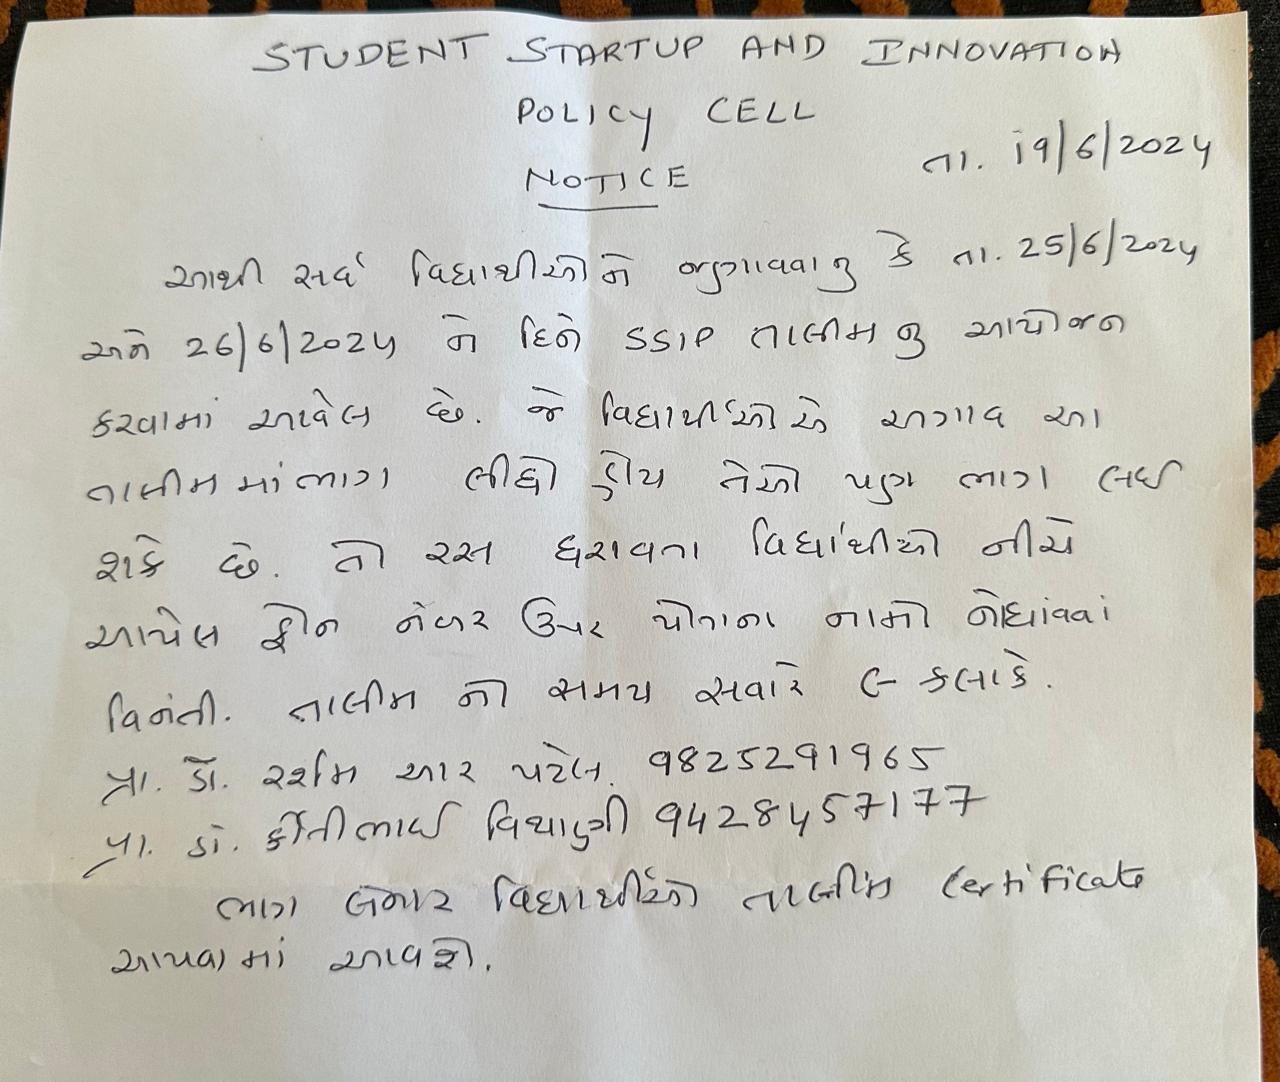 STUDENT STARTUP AND INNOVATION
POLICY CELL
તા. 19/6/2024
NOTICE
આથી સર્વે વિદ્યાર્થીઓને જણાવવાનુ કે તા. 25/6/2024
અને 26/6/2024 ને દિને SSIP તાલીમ નુ આયોજન
કરવામાં આવેલ છે. જે વિદ્યાર્થીઓએ અગાવ આ
તાલીમ માં ભાગ લીધો હોય તેઓ પણ ભાગ લઈ
શકે છે. તો રસ ધરાવતા વિદ્યાર્થીઓ નીચે
આપેલ ફોન નંબર ઉપર પોતાના નામો નોંધાવવા
વિનંતી. તાલીમ નો સમય સવારે ૯ કલાકે.
પ્રા. ડૉ. રશ્મિ આર પટેલ. 9825291965
પ્રા. ડૉ. કાંતીભાઈ 9428457177
ભાગ લેનાર વિદ્યાર્થીઓને તાલીમ Certificate
આપવામાં આવશે.